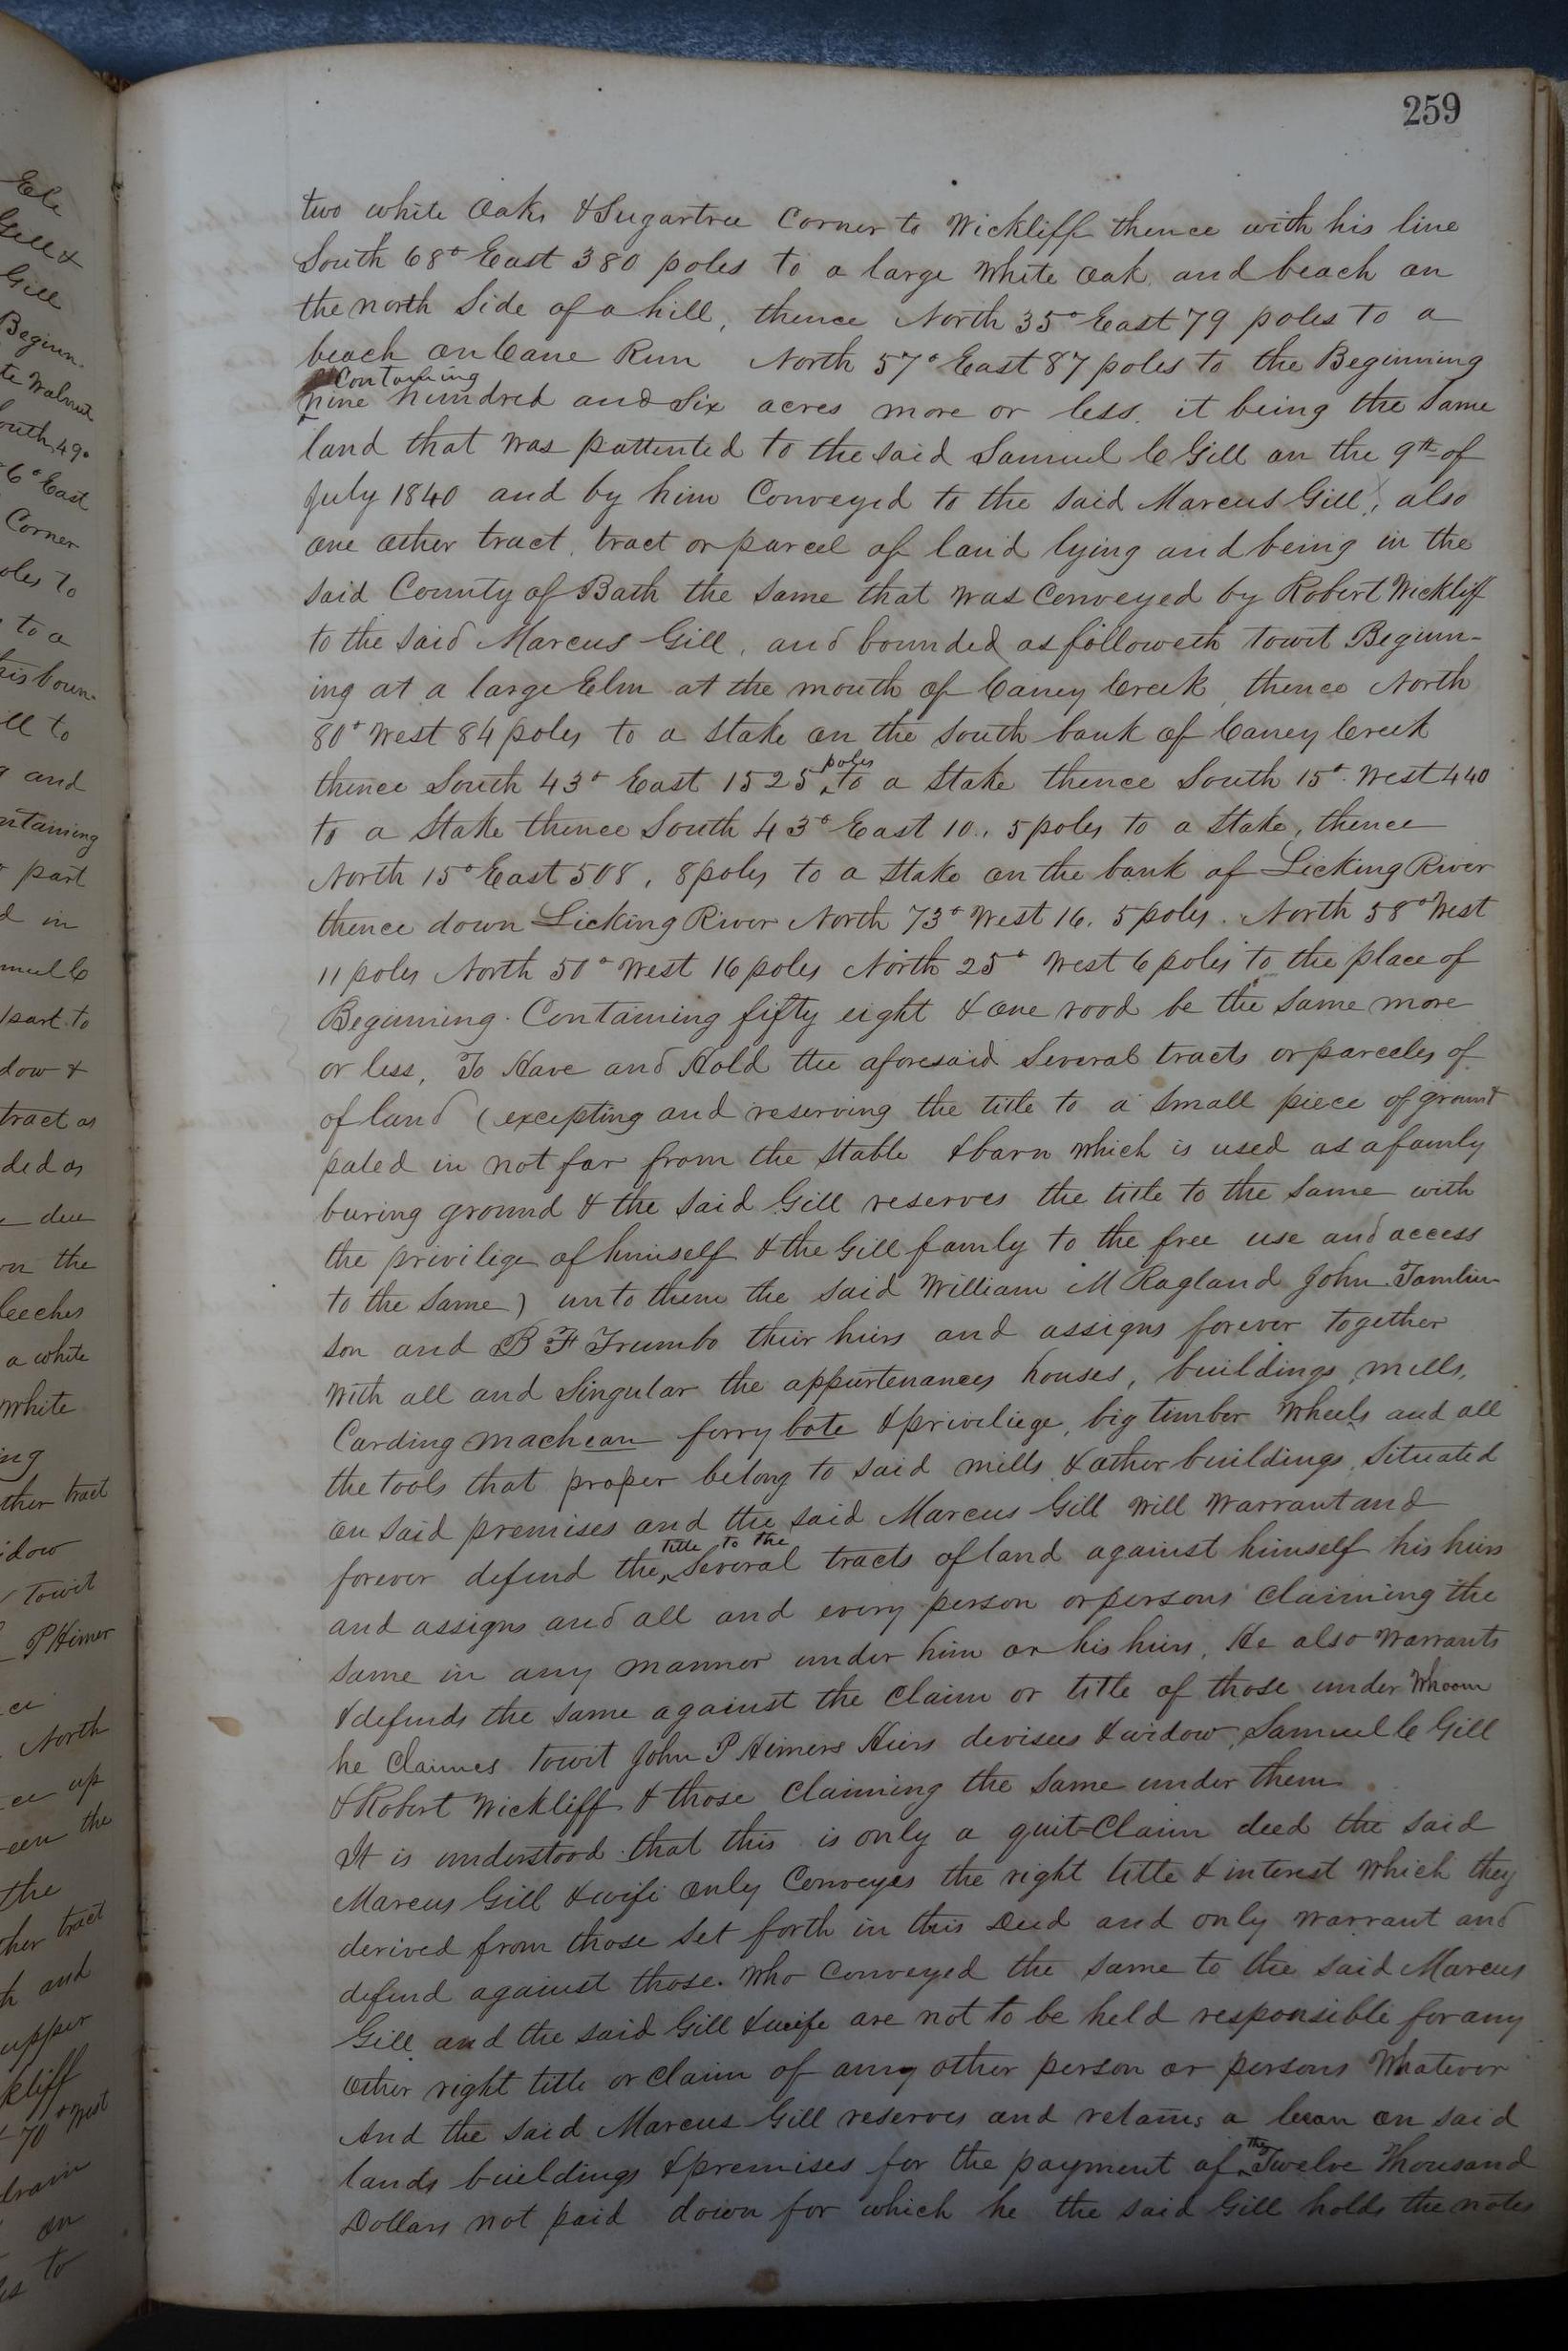 259
two white Oaks & Sugartree Corner to Wickliff thence with his line
South 68° East 380 poles to a large White Oak and beach on
the north Side of a hill, thence North 35° East 79 poles to a
beach on Cane Run North 57° East 87 poles to the Beginning
Containing
nine hundred and Six acres more or less. it being the Same
land that was pattented to the said Samuel C Gill on the 9th of
July 1840 and by him Conveyed to the said Marcus Gill, also
one other tract, tract or parcel of land lying and being in the
said County of Bath the same that was Conveyed by Robert Wickliff
to the said Marcus Gill, and bounded as followeth towit Beginn-
ing at a large Elm at the mouth of Caney Creek, thence North
80° West 84 poles to a Stake on the south bank of Caney Creek
thence South 43° East 1525 poles to a Stake thence South 15° West 440
to a Stake thence South 43° East 10. 5 poles to a Stake, thence
North 15° East 508. 8 poles to a Stake on the bank of Licking River
thence down Licking River North 73° West 16. 5 poles. North 58° West
11 poles North 50° West 16 poles North 25° West 6 poles to the place of
Beginning. Containing fifty eight & one rood be the same more
or less, To Have and Hold the aforesaid Several tracts or parceles of
of land (excepting and reserving the title to a small piece of ground
paled in not far from the stable & barn which is used as a family
buring ground & the said Gill reserves the title to the same with
the privilige of himself & the Gill family to the free use and access
to the same) unto them the said William M Ragland John Tomlin-
son and B F Trumbo their heirs and assigns forever together
with all and Singular the appurtenances houses, buildings, mills,
Carding machean ferry bote & priveliege, big timber Wheels and all
the tools that proper belong to said mills & other buildings, Situated
on said premises and the said Marcus Gill will warrant and
forever defend the title to the Several tracts of land against himself his heirs
and assigns and all and every person or persons Claiming the
same in any manner under him or his heirs, He also Warrants
& defends the same against the Claim or title of those under Whoom
he Claimes towit John P Himers Heirs devisees & widow, Samuel C Gill
& Robert Wickliff & those Claiming the same under them
It is understood that this is only a quit-Claim deed the said
Marcus Gill & wife only Conveyes the right title & interest which they
derived from those set forth in this Deed and only warrant and
defend against those. Who Conveyed the same to the said Marcus
Gill and the said Gill & wife are not to be held responsible for any
other right title or claim of any other person or persons Whatever
And the said Marcus Gill reserves and retains a lean on said
lands buildings & premises for the payment of the Twelve Thousand
Dollars not paid down for which he the said Gill holds the notes